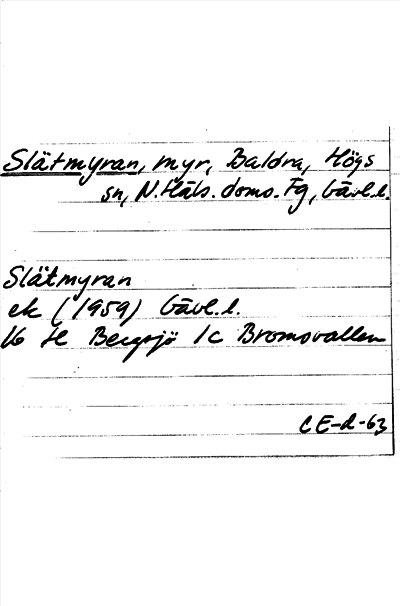 Slätmyran, myr, Baldra, Högs
sn, N. Häls. doms. Fg, Gävl.l.
Slätmyran
ek (1959) Gävl.l.
16 H Bergsjö 1c Bromsvallen
CE-d-63